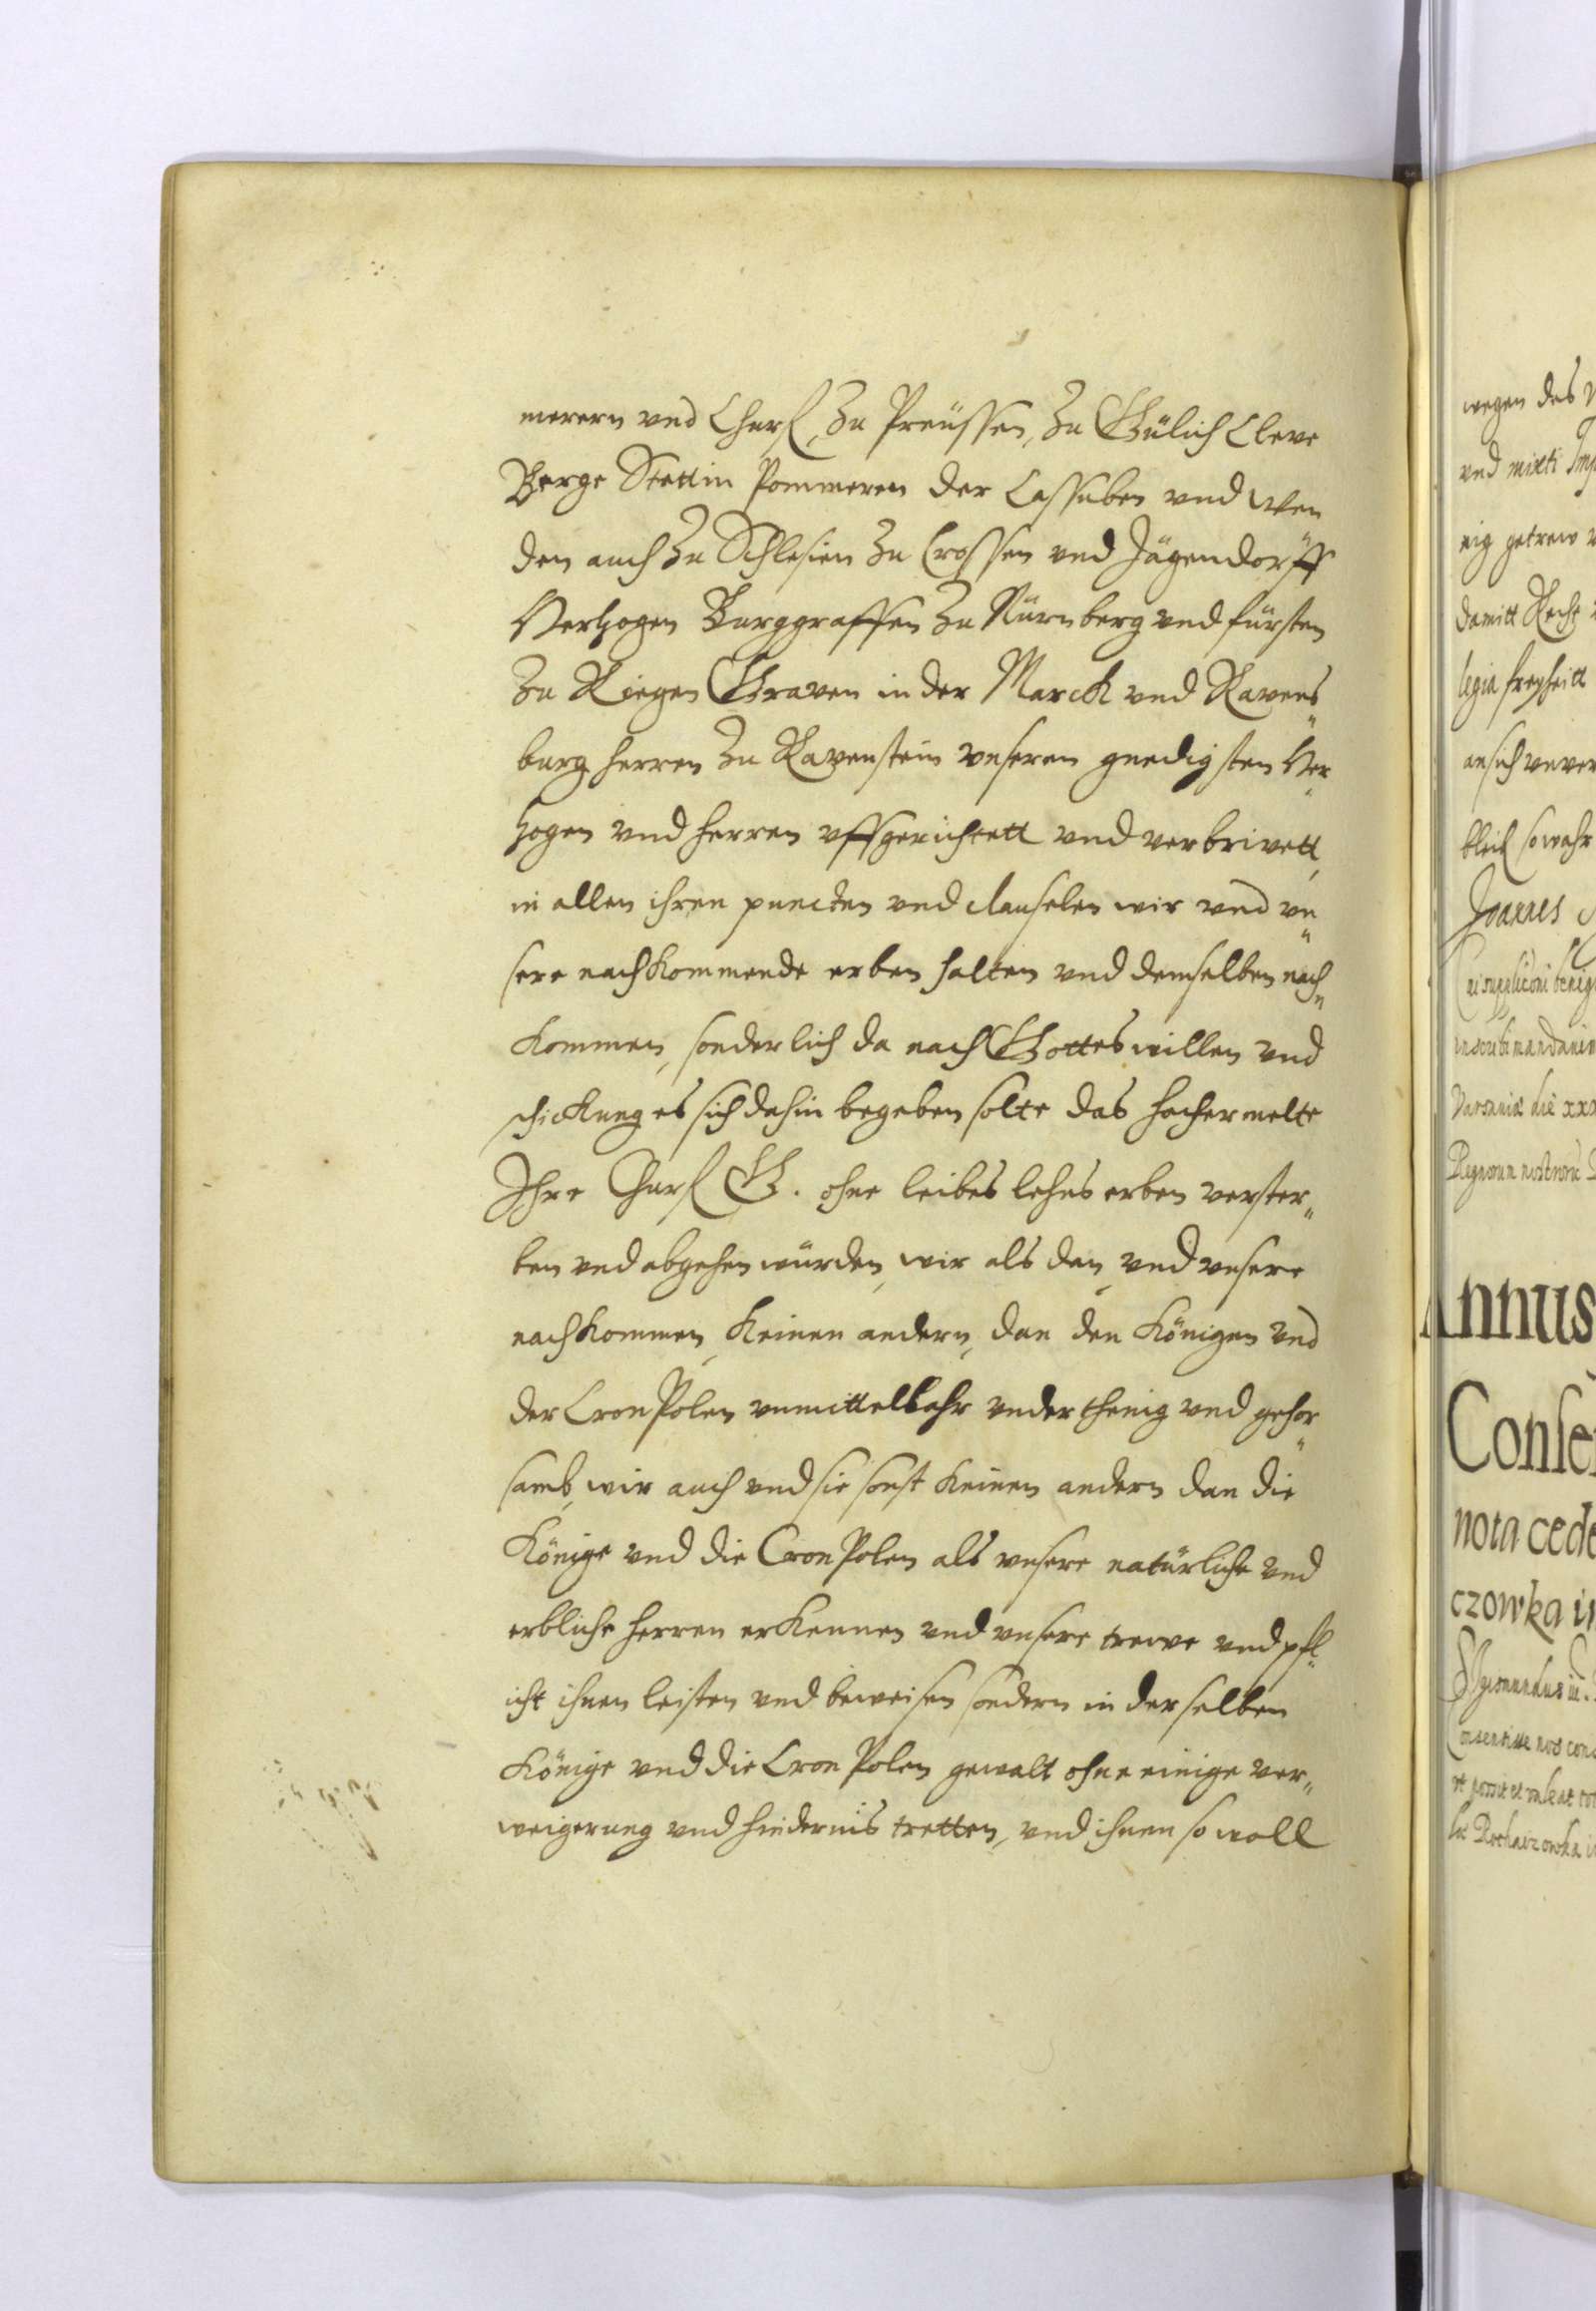 merern vnd Churf, Zu Preüssen, Zu Gülich Cleve
Berge Stettin Pommeren der Cassuben vnd Wen
den auch Zu Schlesien Zu Crossen vnd Jägendorff
Herhogen Burggraffen Zu Nürnberg vnd fürsten
Zu Riegen Graven in der Marck vnd Ravens
burg herren Zu Ravenstein vnseren gnedigsten Her„
hogen vnd herren vffgerichtett vnd verbrivett,
in allen ihren puncten vnd clauselen wir vnd vn„
sere nachkommende erben halten vnd demselben nach„
kommen, sonderlich da nach Gottes willen vnd
schickung es sich dahin begeben solte das hochermelte
Ihre Churf G. ohne leibes lehns erben verster„
ben vnd abgehen würden, wir als dan, vnd vnsere
nachkommen, keinen andern, dan den Königen vnd
der Cron Polen vnmittelbahr vnderthenig vnd gehor„
samb, wir auch vnd sie sonst keinen andern dan die
Könige vnd die Cron Polen als vnsere natürliche vnd
erbliche herren erkennen vnd vnsere trewe vnd pfl„
icht ihnen leisten vnd beweisen sondern in derselben
Könige vnd die Cron Polen gewalt ohne einige ver„
weigerung vnd hindernis tretten, vnd ihnen so woll
wegen des
vnd mixti Imp
nig getrew
damitt Recht
legia freyheitt
an sich vnver
bleib so wahr
Joannes
Varsaviæ die xxx
Annus
Conse
nota cede
czowka in
Consensisse nos